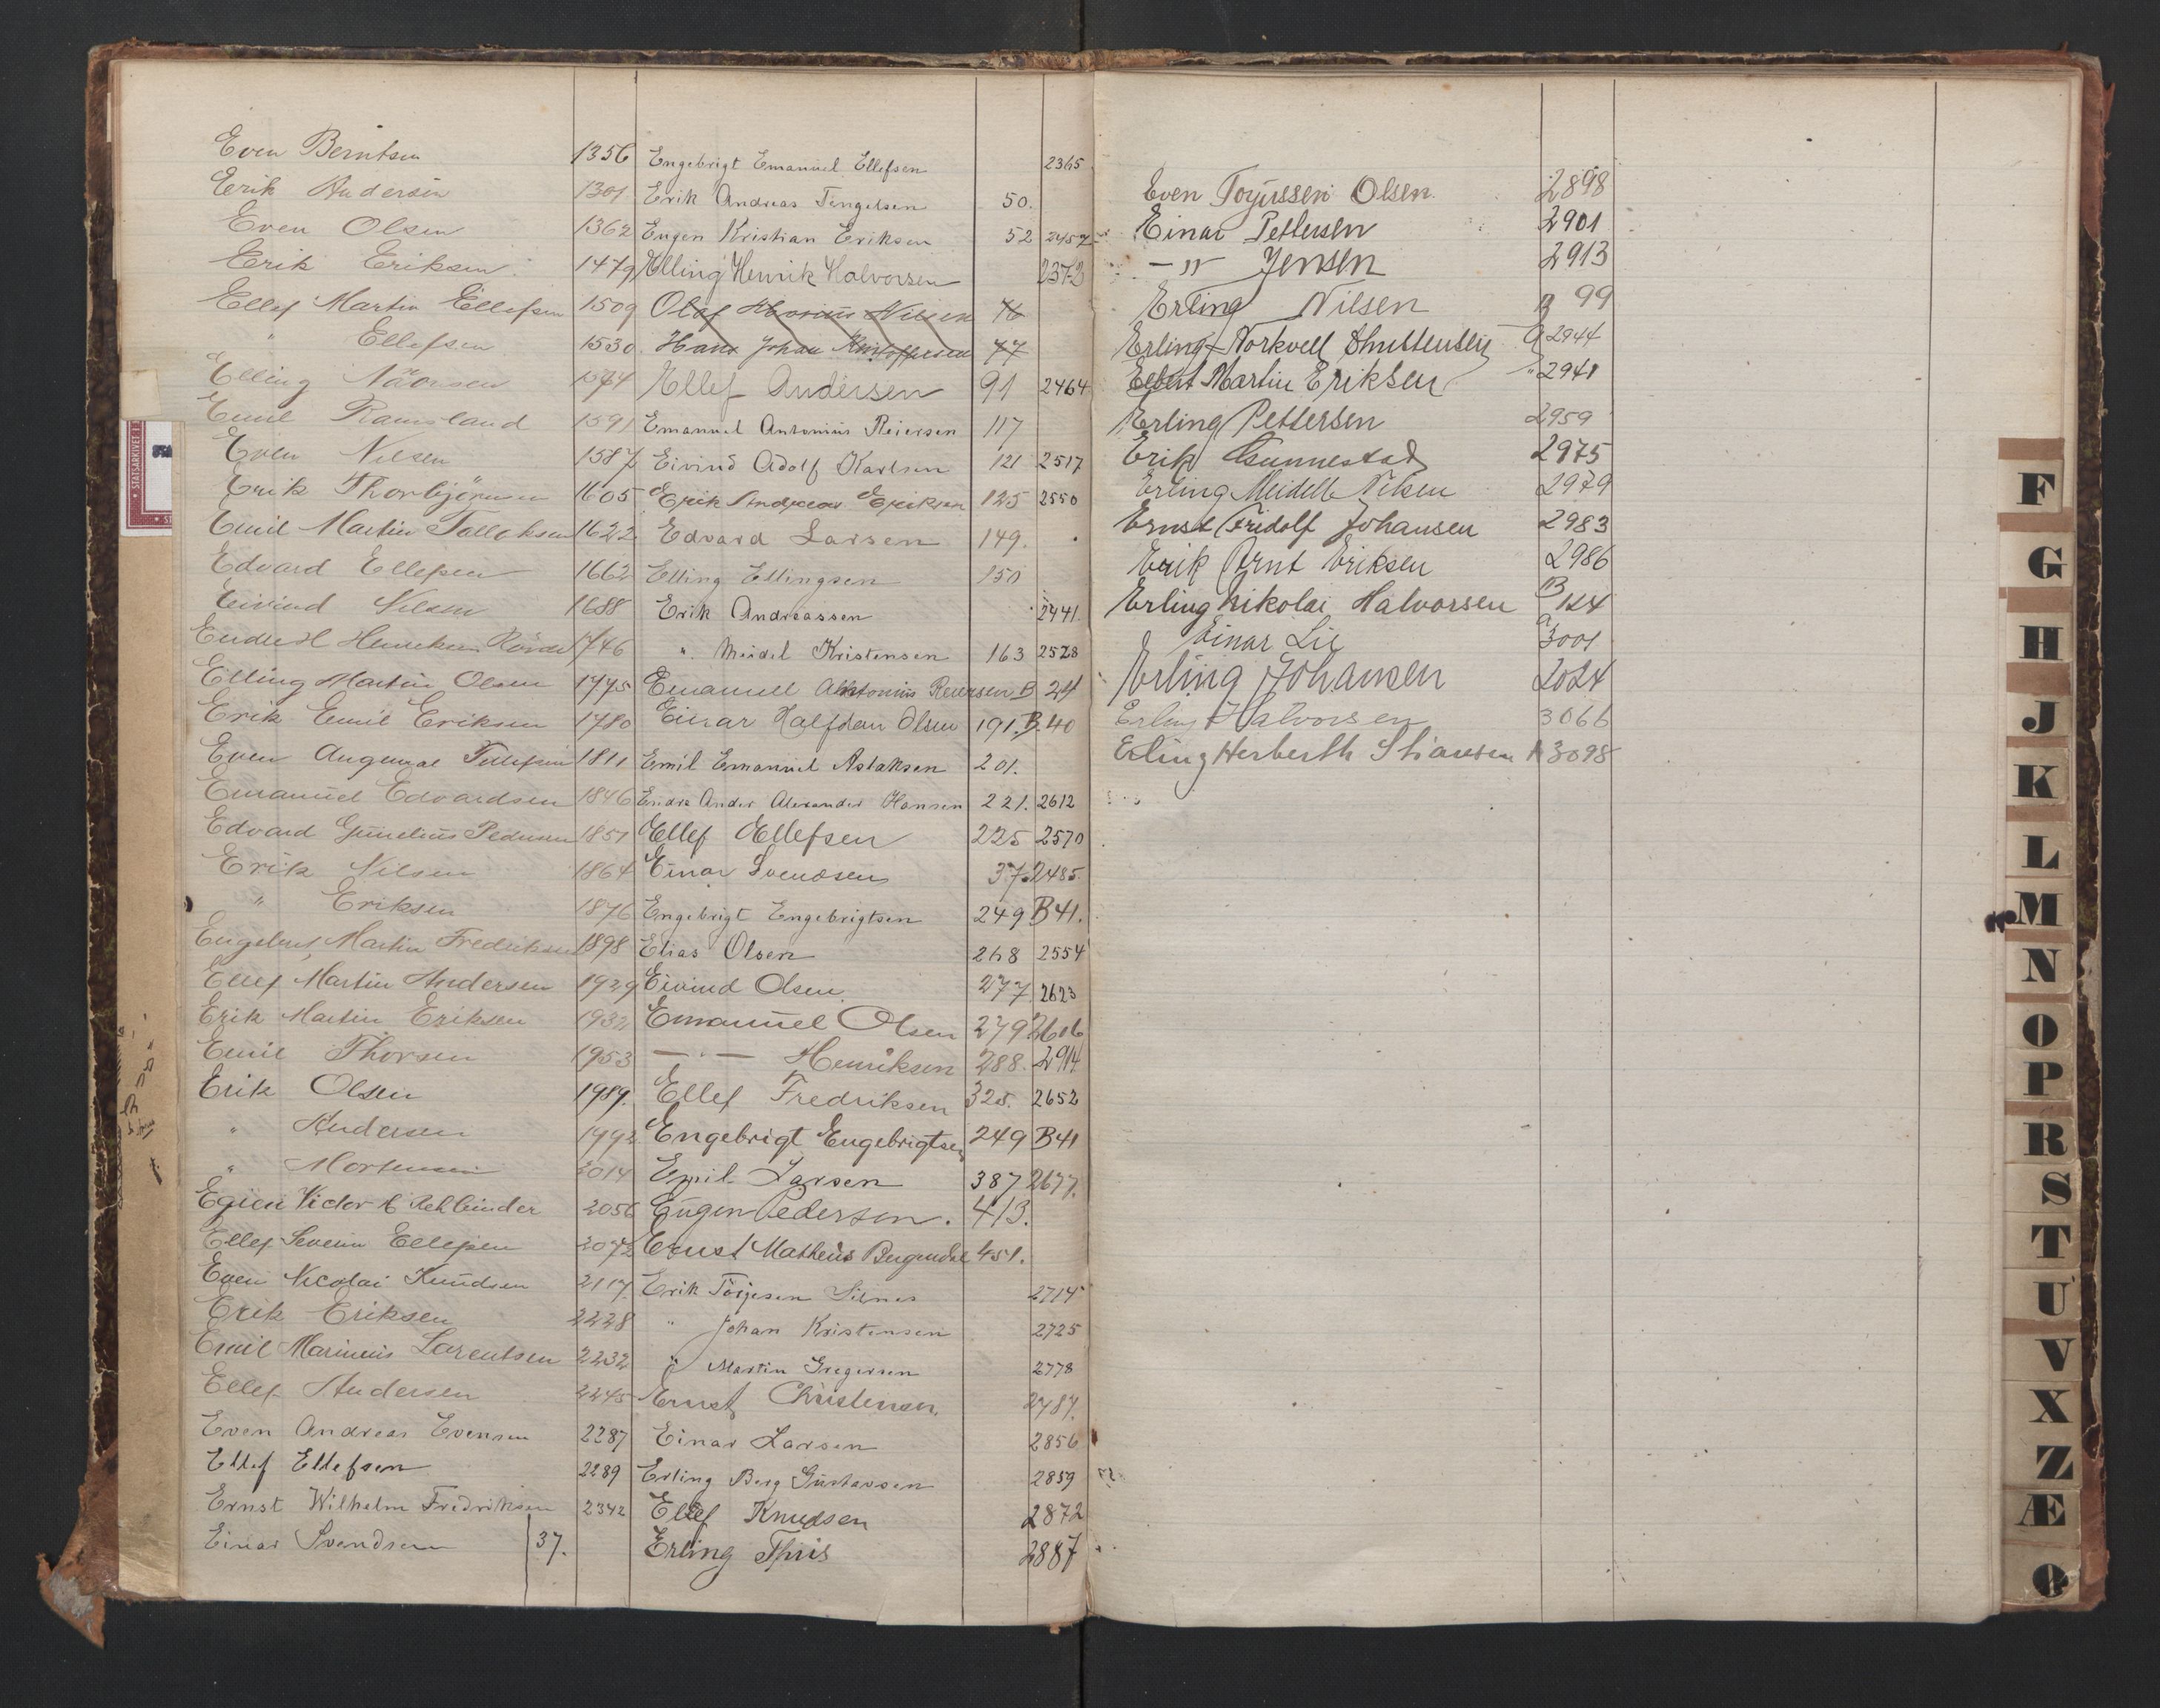 Even Berntsen 1356
Erik Andersen 1301
Even Olsen 1362
Erik Eriksen 1479
Ellef Martin Ellefsen 1509
" Ellefsen 1530
Elling 1574
Emil Ramsland 1591
Even Nilsen 1587
Erik Thorbjörnsen 1605
Emil Martin Tallaksen 1622
Edvard Ellefsen 1662
Eivind Nilsen 1688
1746
Elling Martin Olsen 1775
Erik Emil Eriksen 1780
Even 1811
Emanuel Edvardsen 1846
Edvard Pedersen 1851
Erik Nilsen 1864
" Eriksen 1876
Engebret Martin Fredriksen 1898
Ellef Martin Andersen 1929
Erik Martin Eriksen 1932
Emil Thorsen 1953
Erik Olsen 1989.
" Andersen 1992
" Mortensen 2014
Victor Rehbinder 2056
Ellef Severin Ellefsen 2072
Even Nicolai Knudsen 2117
Erik Eriksen 2228
Emil Marinius Larentsen 2232
Ellef Andersen 2245
Even Andreas Evensen 2287
Ellef Ellefsen 2289
Ernst Wilhelm Fredriksen 2342
Einar Svendsen 37.
Engebrigt Emanuel Ellefsen 2365
Erik Andreas Tengelsen 50.
Eugen Kristian Eriksen 52 2457
Elling Henrik Halvorsen 2372
Olaf Nilsen 76
Hans Johan Kristoffersen 77
Ellef Andersen 91 2464
Emanuel Antonius Reiersen 117
Eivind Adolf Karlsen 121 2517
Erik Andreas Eriksen 125 2550
Edvard Larsen 149.
Elling Ellingsen 150
Erik Andreassen 2441.
" Meidel Kristensen 163 2528
Emanuell Antonius Reiersen B 24
Einar Halfdan Olsen 191. B. 40
Emil Emanuel Aslaksen 201.
Endre Ander Alexander Hansen 221. 2612
Ellef Ellefsen 225 2570
Einar Svendsen 37. 2485.
Engebrigt Engebrigtsen 249 B41.
Elias Olsen 268 2554
Eivind Olsen 277 2623
Emanuel Olsen 279 2606
— " — Henriksen 288. 2914
Ellef Fredriksen 325. 2652
Engebrigt Engebrigtsen 249 B41
Emil Larsen 387 2677.
Eugen Pedersen. 413.
Ernst Matheus 451.
Erik Törjesen Silnes 2714
" Johan Kristensen 2725
" Martin Gregersen 2778
Ernst Christensen. 2787.
Einar Larsen 2856
Erling Berg Gustavsen 2859
Ellef Knudsen 2872
Erling Thiis 2887
Even Torjussen Olsen. 2898
Einar Pettersen 2901
— " — Jensen 2913
Erling Nilsen B 99
Erling Norkvell 2944
Martin Eriksen " 2941
Erling Pettersen 2959
Erik Gunnestad 2975
Erling Meidell Nilsen 2979
Ernst Fridolf Johansen 2983
Erik Arnt Eriksen 2986
Erling Nikolai Halvorsen B 124
Einar Lie 3001
Erling Johansen
Erling Halvorsen 3066
Erling Herberth Stiansen A 3098
STATSARKIVET I
F
G
H
J
K
L
M
N
O
P
R
S
T
U
V
X
Z
Æ
Ø